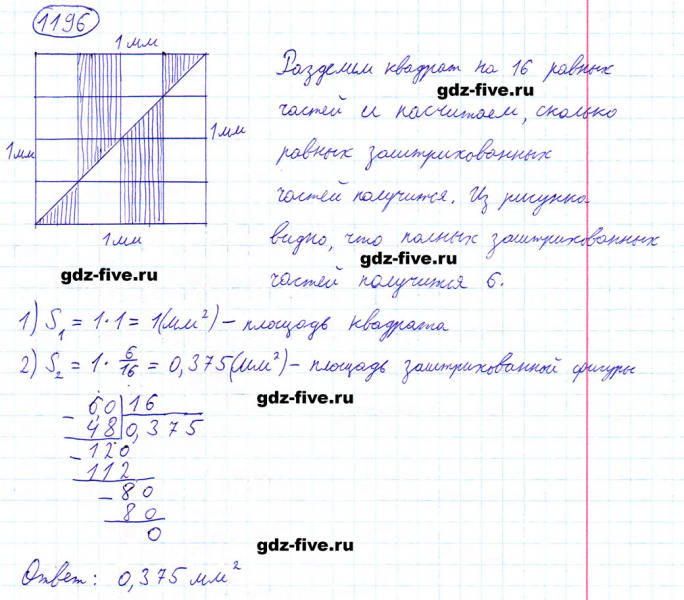 1196
1 мм
1 мм
1 мм
1 мм
Разделим квадрат на 16 равных
gdz-five.ru
частей и посчитаем, сколько
равных заштрихованных
частей получится. Из рисунка
видно, что полных заштрихованных
gdz-five.ru
gdz-five.ru
частей получится 6.
1) S₁ = 1 · 1 = 1(мм²) – площадь квадрата
2) S₂ = 1 · 6/16 = 0,375(мм²) – площадь заштрихованной фигуры
gdz-five.ru
– 6,0 | 16
48 | 0,375
– 120
112
– 80
80
0
gdz-five.ru
Ответ: 0,375 мм²